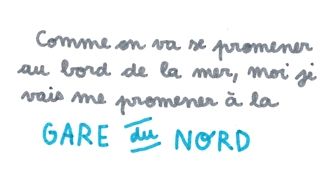 Comme on va se promener
au bord de la mer, moi je
vais me promener à la
GARE du NORD